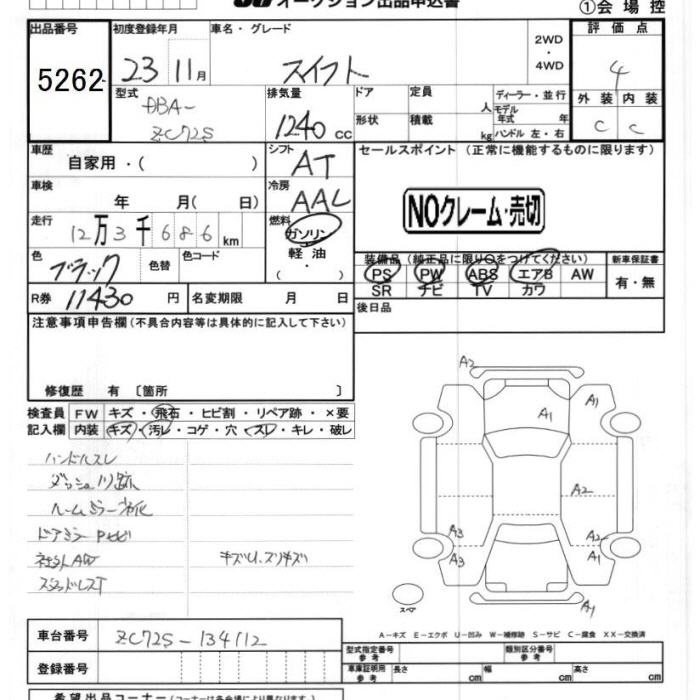 オークション出品申込書
①会場控
出品番号 初度登録年月 車名・グレード 2WD・4WD 評価点
5262 23 11月 スイフト 4
型式 排気量 ドア 定員 人 ディーラー・並行 外装 内装
DBA- 1240cc 形状 積載 kg モデル年式 年 C C
ZC72S ハンドル 左・右
車歴 シフト セールスポイント (正常に機能するものに限ります)
自家用・( ) AT
車検 冷房
年 月( 日) AAC NOクレーム・売切
走行 燃料
12万3千686km ガソリン
色 色替 色コード 軽油 装備品(純正品に限り○をつけてください) 新車保証書
ブラック ・( ) PS PW ABS エアB AW 有・無
R券 11430円 名変期限 月 日 SR ナビ TV カワ
注意事項申告欄(不具合内容等は具体的に記入して下さい) 後日品
修復歴 有 〔箇所 〕
検査員 FW キズ・飛石・ヒビ割・リペア跡・×要
記入欄 内装 キズ・汚レ・コゲ・穴・スレ・キレ・破レ
ハンドルスレ
ダッシュ川跡
ルームミラー劣化
ドアミラー
社外AW キズU、スリキズ
スタッドレスT
A2
A1 A1
A2
A3 A2
A3 A1
スペア A1
A-キズ E-エクボ U-凹み W-補修跡 S-サビ C-腐食 XX-交換済
車台番号 ZC72S-134112
型式指定番号 参考 類別区分番号 参考
登録番号 車庫証明用 参考 長さ cm 幅 cm 高さ cm
希望出品コーナー(コーナーは各会場により異なります)